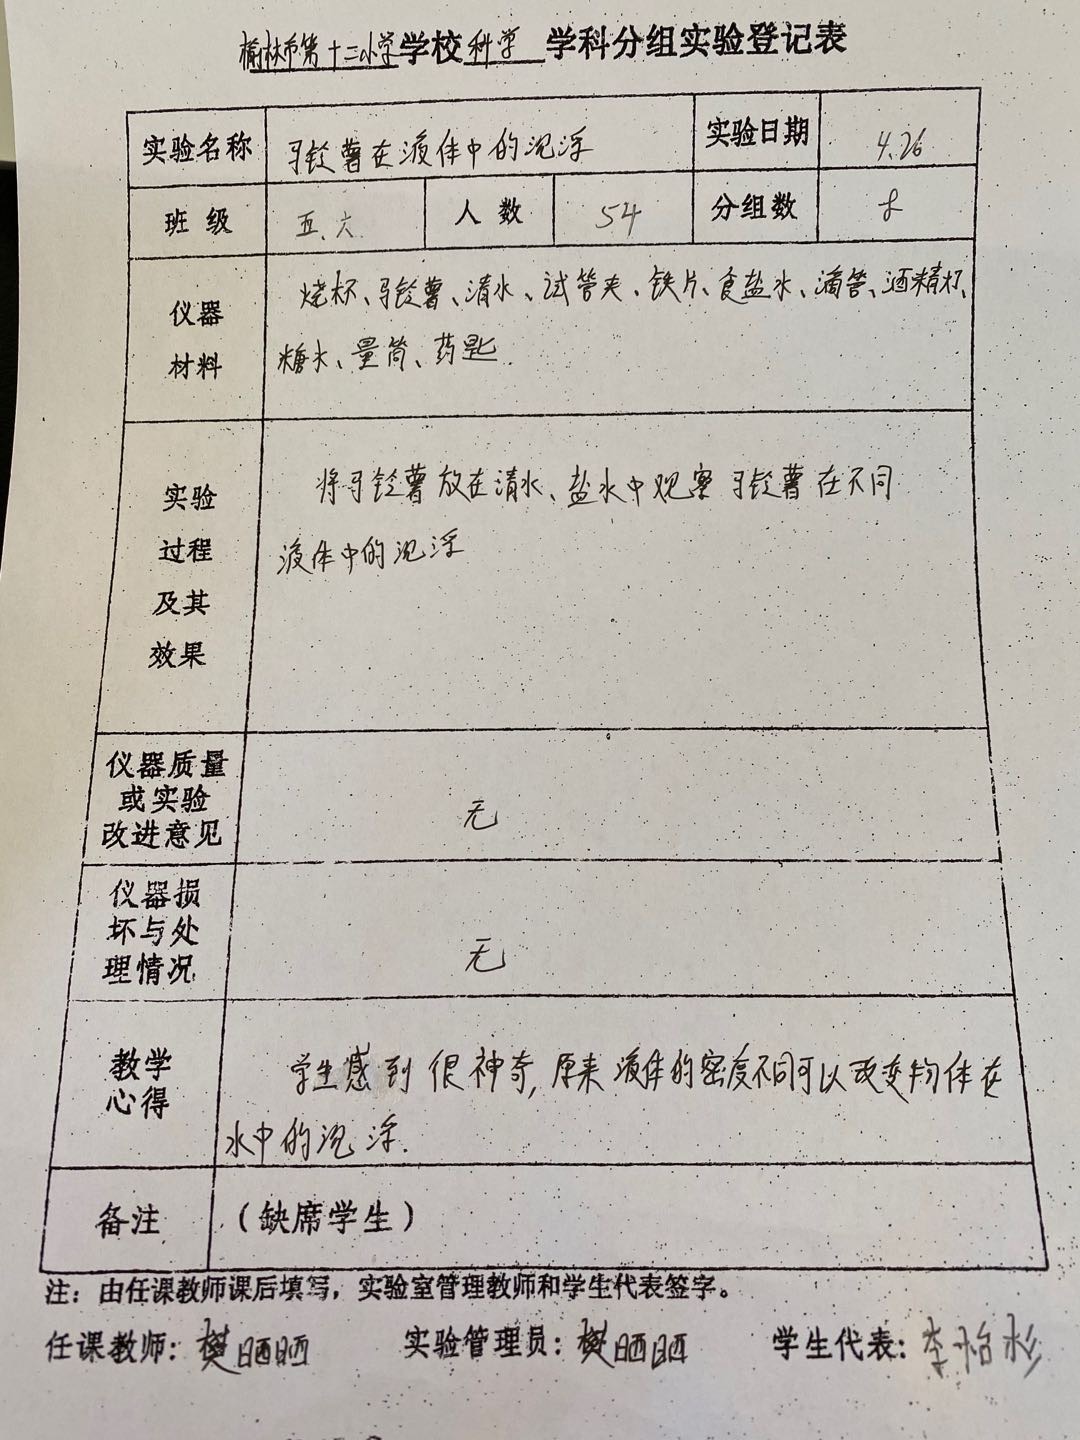 榆林市第十二小学学校科学 学科分组实验登记表
实验名称 马铃薯在液体中的沉浮 实验日期 4.26
班级 五、六 人数 54 分组数 8
仪器材料 烧杯、马铃薯、清水、试管夹、铁片、食盐水、滴管、酒精灯、
糖水、量筒、药匙.
实验过程及其效果 将马铃薯放在清水、盐水中观察马铃薯在不同
液体中的沉浮
仪器质量或实验改进意见 无
仪器损坏与处理情况 无
教学心得 学生感到很神奇,原来液体的密度不同可以改变物体在
水中的沉浮.
备注 (缺席学生)
注:由任课教师课后填写,实验室管理教师和学生代表签字。
任课教师:樊晒晒 实验管理员:樊晒晒 学生代表:李怡彤